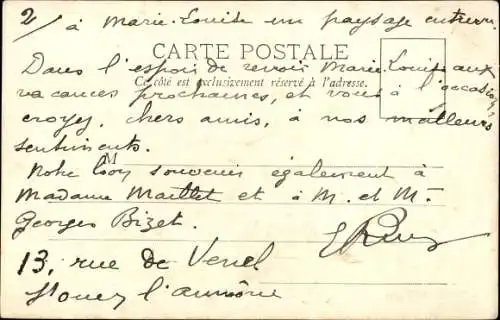 2/ à Marie-Louise un paysage
CARTE POSTALE
Dans l'espoir de revoir Marie-Louise aux
Ce côté est exclusivement réservé à l'adresse.
vacances prochaines, et vous à l'occasion,
croyez, chers amis, à nos meilleurs
sentiments.
M
Notre bon souvenir également à
Madame Maillet et à M. et M.
Georges Bizet.
13, rue de Venel
l'aumône